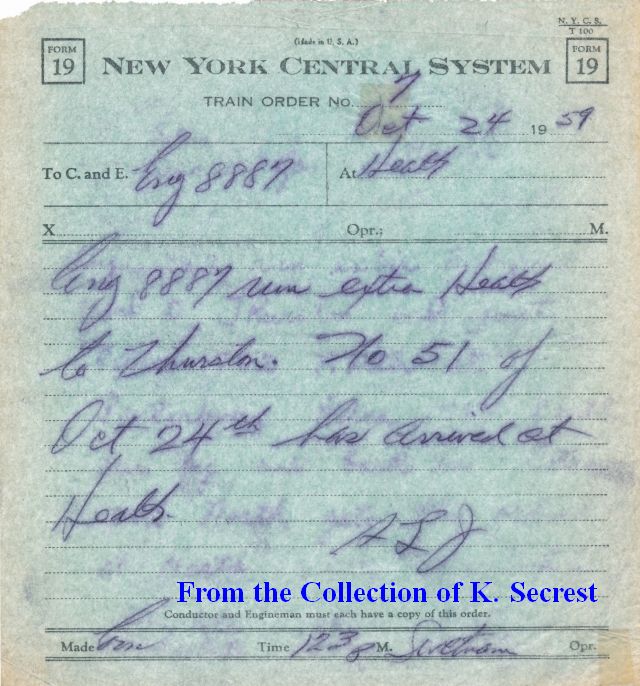 N. Y. C. S.
T 100
(Made in U. S. A.)
FORM 19
NEW YORK CENTRAL SYSTEM
FORM 19
TRAIN ORDER NO. 7
Oct 24 1959
To C. and E. Eng 8887 At Heath
X Opr.; M.
Eng 8887 run extra Heath
to Thurston. No 51 of
Oct 24th has arrived at
Heath.
From the Collection of K. Secrest
Conductor and Engineman must each have a copy of this order.
Made Com Time 123 M. Opr.